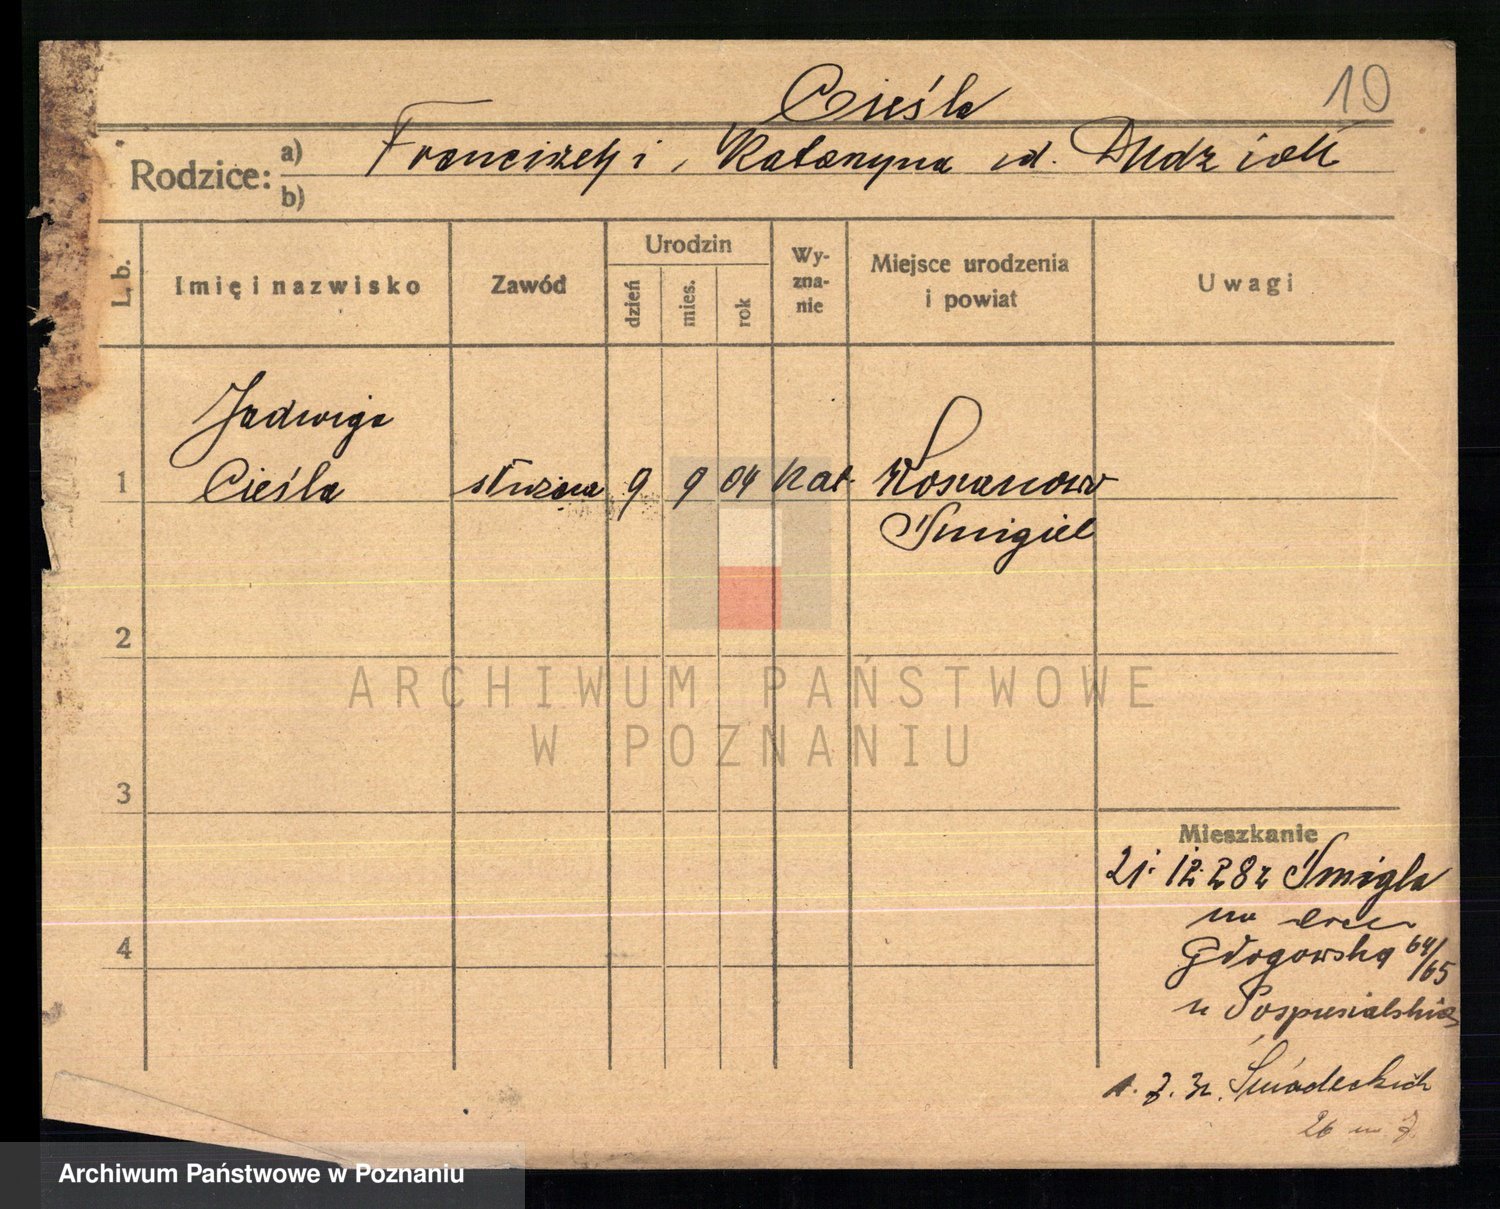 10
Cieśla
Rodzice: a) Franciszek i, Katarzyna zd. Dudziak
b)
L. b. Imię i nazwisko Zawód Urodzin dzień mies. rok Wyznanie Miejsce urodzenia i powiat Uwagi
Jadwiga
1 Cieśla służąca 9 9 04 kat.
Śmigiel
2
3
4
Mieszkanie
21. 12. 28 r Śmigla
na
Głogowska 64/65
u Pospieszalskich
Śniadeckich
26 m 7
ARCHIWUM PAŃSTWOWE
W POZNANIU
Archiwum Państwowe w Poznaniu